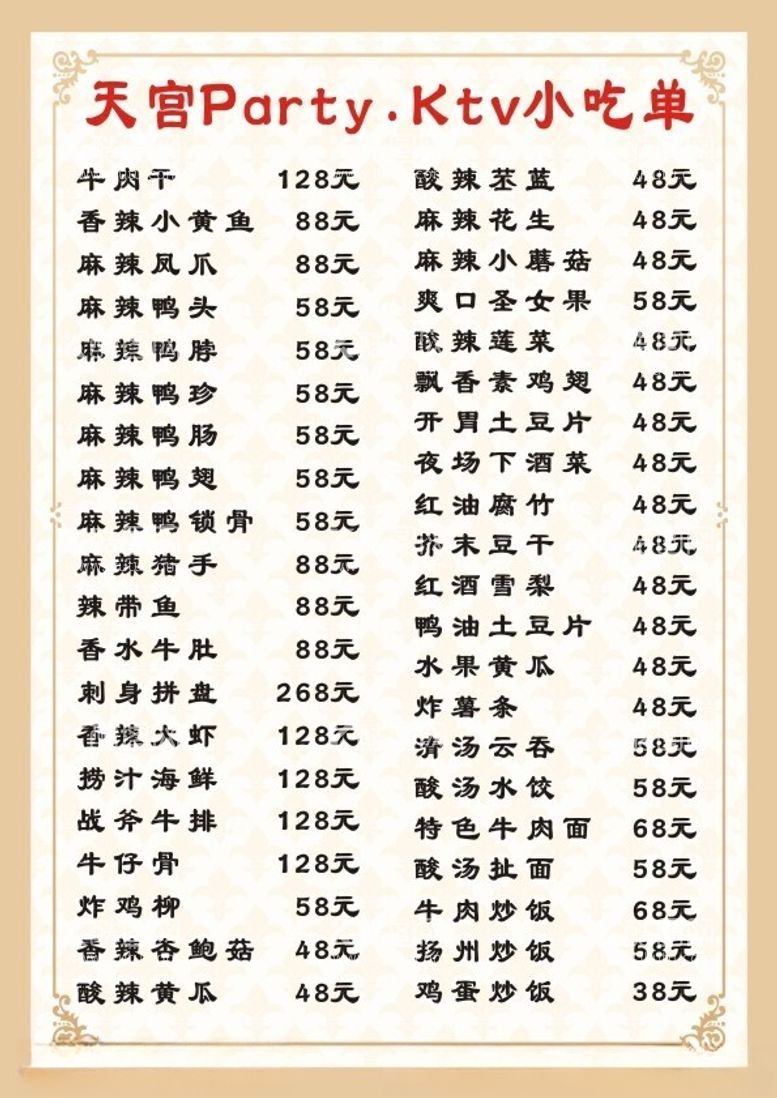 天宫Party.Ktv小吃单
牛肉干 128元
香辣小黄鱼 88元
麻辣凤爪 88元
麻辣鸭头 58元
麻辣鸭脖 58元
麻辣鸭珍 58元
麻辣鸭肠 58元
麻辣鸭翅 58元
麻辣鸭锁骨 58元
麻辣猪手 88元
辣带鱼 88元
香水牛肚 88元
刺身拼盘 268元
香辣大虾 128元
捞汁海鲜 128元
战斧牛排 128元
牛仔骨 128元
炸鸡柳 58元
香辣杏鲍菇 48元
酸辣黄瓜 48元
酸辣苤蓝 48元
麻辣花生 48元
麻辣小蘑菇 48元
爽口圣女果 58元
酸辣莲菜 48元
飘香素鸡翅 48元
开胃土豆片 48元
夜场下酒菜 48元
红油腐竹 48元
芥末豆干 48元
红酒雪梨 48元
鸭油土豆片 48元
水果黄瓜 48元
炸薯条 48元
清汤云吞 58元
酸汤水饺 58元
特色牛肉面 68元
酸汤扯面 58元
牛肉炒饭 68元
扬州炒饭 58元
鸡蛋炒饭 38元